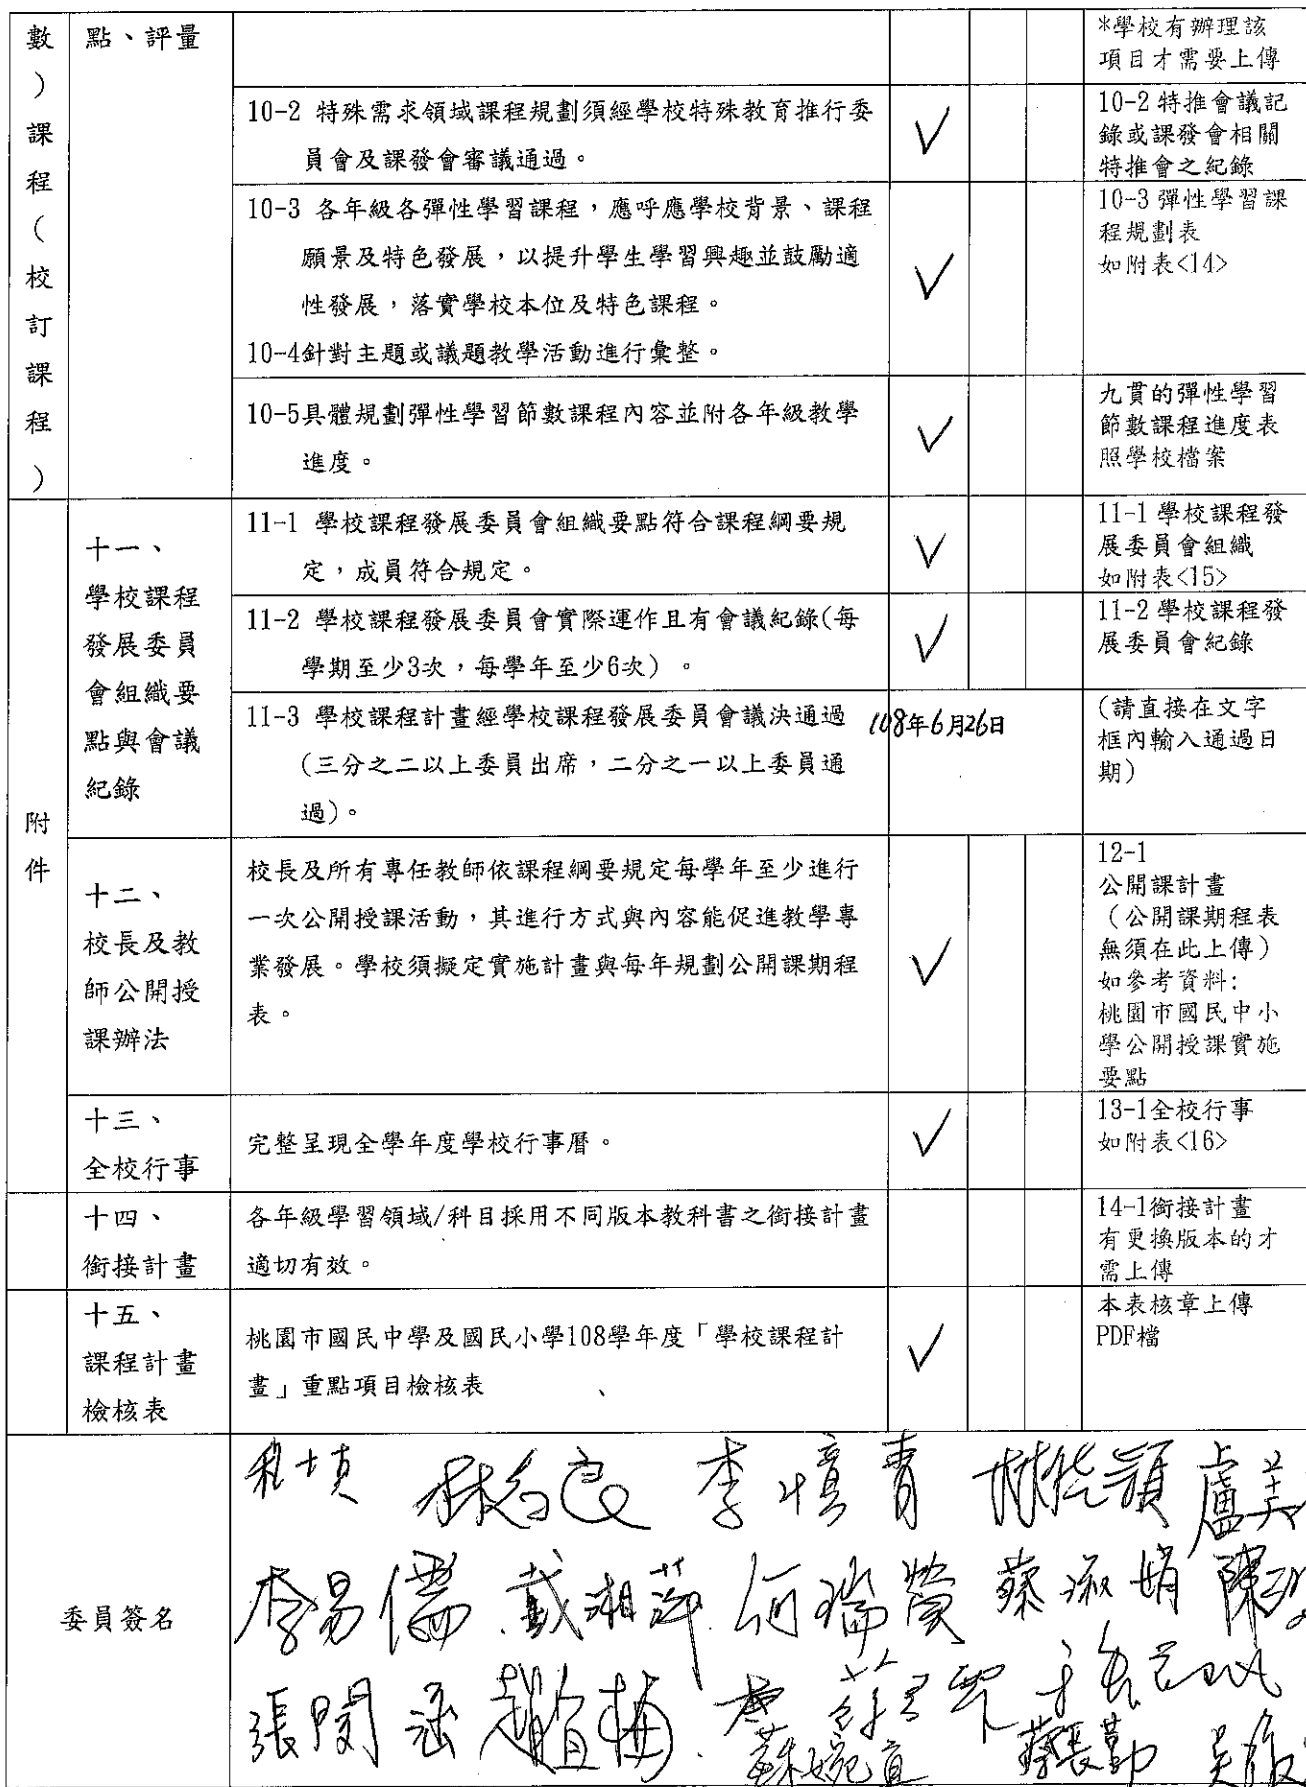 數
）
課
程
（
校
訂
課
程
）
點、評量
*學校有辦理該
項目才需要上傳
10-2 特殊需求領域課程規劃須經學校特殊教育推行委
員會及課發會審議通過。
✓
10-2 特推會議記
錄或課發會相關
特推會之紀錄
10-3 各年級各彈性學習課程，應呼應學校背景、課程
願景及特色發展，以提升學生學習興趣並鼓勵適
性發展，落實學校本位及特色課程。
10-4針對主題或議題教學活動進行彙整。
✓
10-3 彈性學習課
程規劃表
如附表<14>
10-5具體規劃彈性學習節數課程內容並附各年級教學
進度。
✓
九貫的彈性學習
節數課程進度表
照學校檔案
附
件
十一、
學校課程
發展委員
會組織要
點與會議
紀錄
11-1 學校課程發展委員會組織要點符合課程綱要規
定，成員符合規定。
✓
11-1 學校課程發
展委員會組織
如附表<15>
11-2 學校課程發展委員會實際運作且有會議紀錄(每
學期至少3次，每學年至少6次) 。
✓
11-2 學校課程發
展委員會紀錄
11-3 學校課程計畫經學校課程發展委員會議決通過
(三分之二以上委員出席，二分之一以上委員通
過)。
108年6月26日
(請直接在文字
框內輸入通過日
期)
十二、
校長及教
師公開授
課辦法
校長及所有專任教師依課程綱要規定每學年至少進行
一次公開授課活動，其進行方式與內容能促進教學專
業發展。學校須擬定實施計畫與每年規劃公開課期程
表。
✓
12-1
公開課計畫
（公開課期程表
無須在此上傳）
如參考資料:
桃園市國民中小
學公開授課實施
要點
十三、
全校行事
完整呈現全學年度學校行事曆。
✓
13-1全校行事
如附表<16>
十四、
銜接計畫
各年級學習領域/科目採用不同版本教科書之銜接計畫
適切有效。
14-1銜接計畫
有更換版本的才
需上傳
十五、
課程計畫
檢核表
桃園市國民中學及國民小學108學年度「學校課程計
畫」重點項目檢核表
✓
本表核章上傳
PDF檔
委員簽名
李憶青 盧美
李易儒 戴湘萍 何瑞蓉 蔡淑娟 陳
張閔涵 趙宜楠
蘇婉宜 蔡長勤